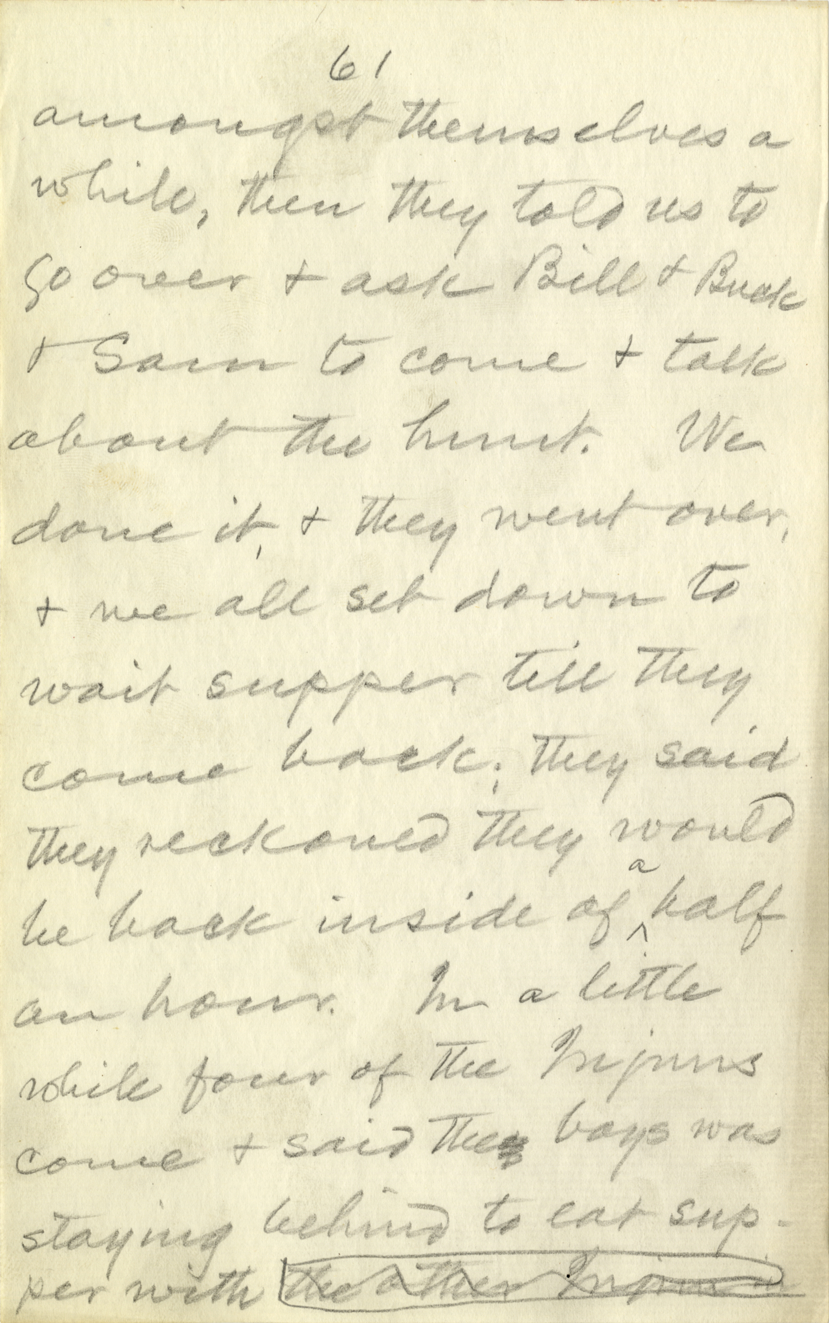 61
amongst themselves a
while, then they told us to
go over + ask Bill + Buck
+ Sam to come + talk
about the hunt. We
done it, + they went over,
+ we all set down to
wait supper till they
come back; they said
they reckoned they would
be back inside of a half
an hour. In a little
while four of the Injuns
come + said the boys was
staying behind to eat sup-
per with the other Injuns